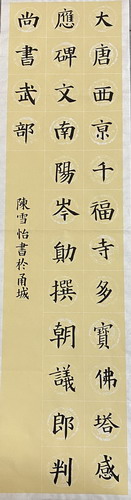 大唐西京千福寺多寶佛塔感
應碑文南陽岑勛撰朝議郎判
尚書武部
陳雪怡書於甬城